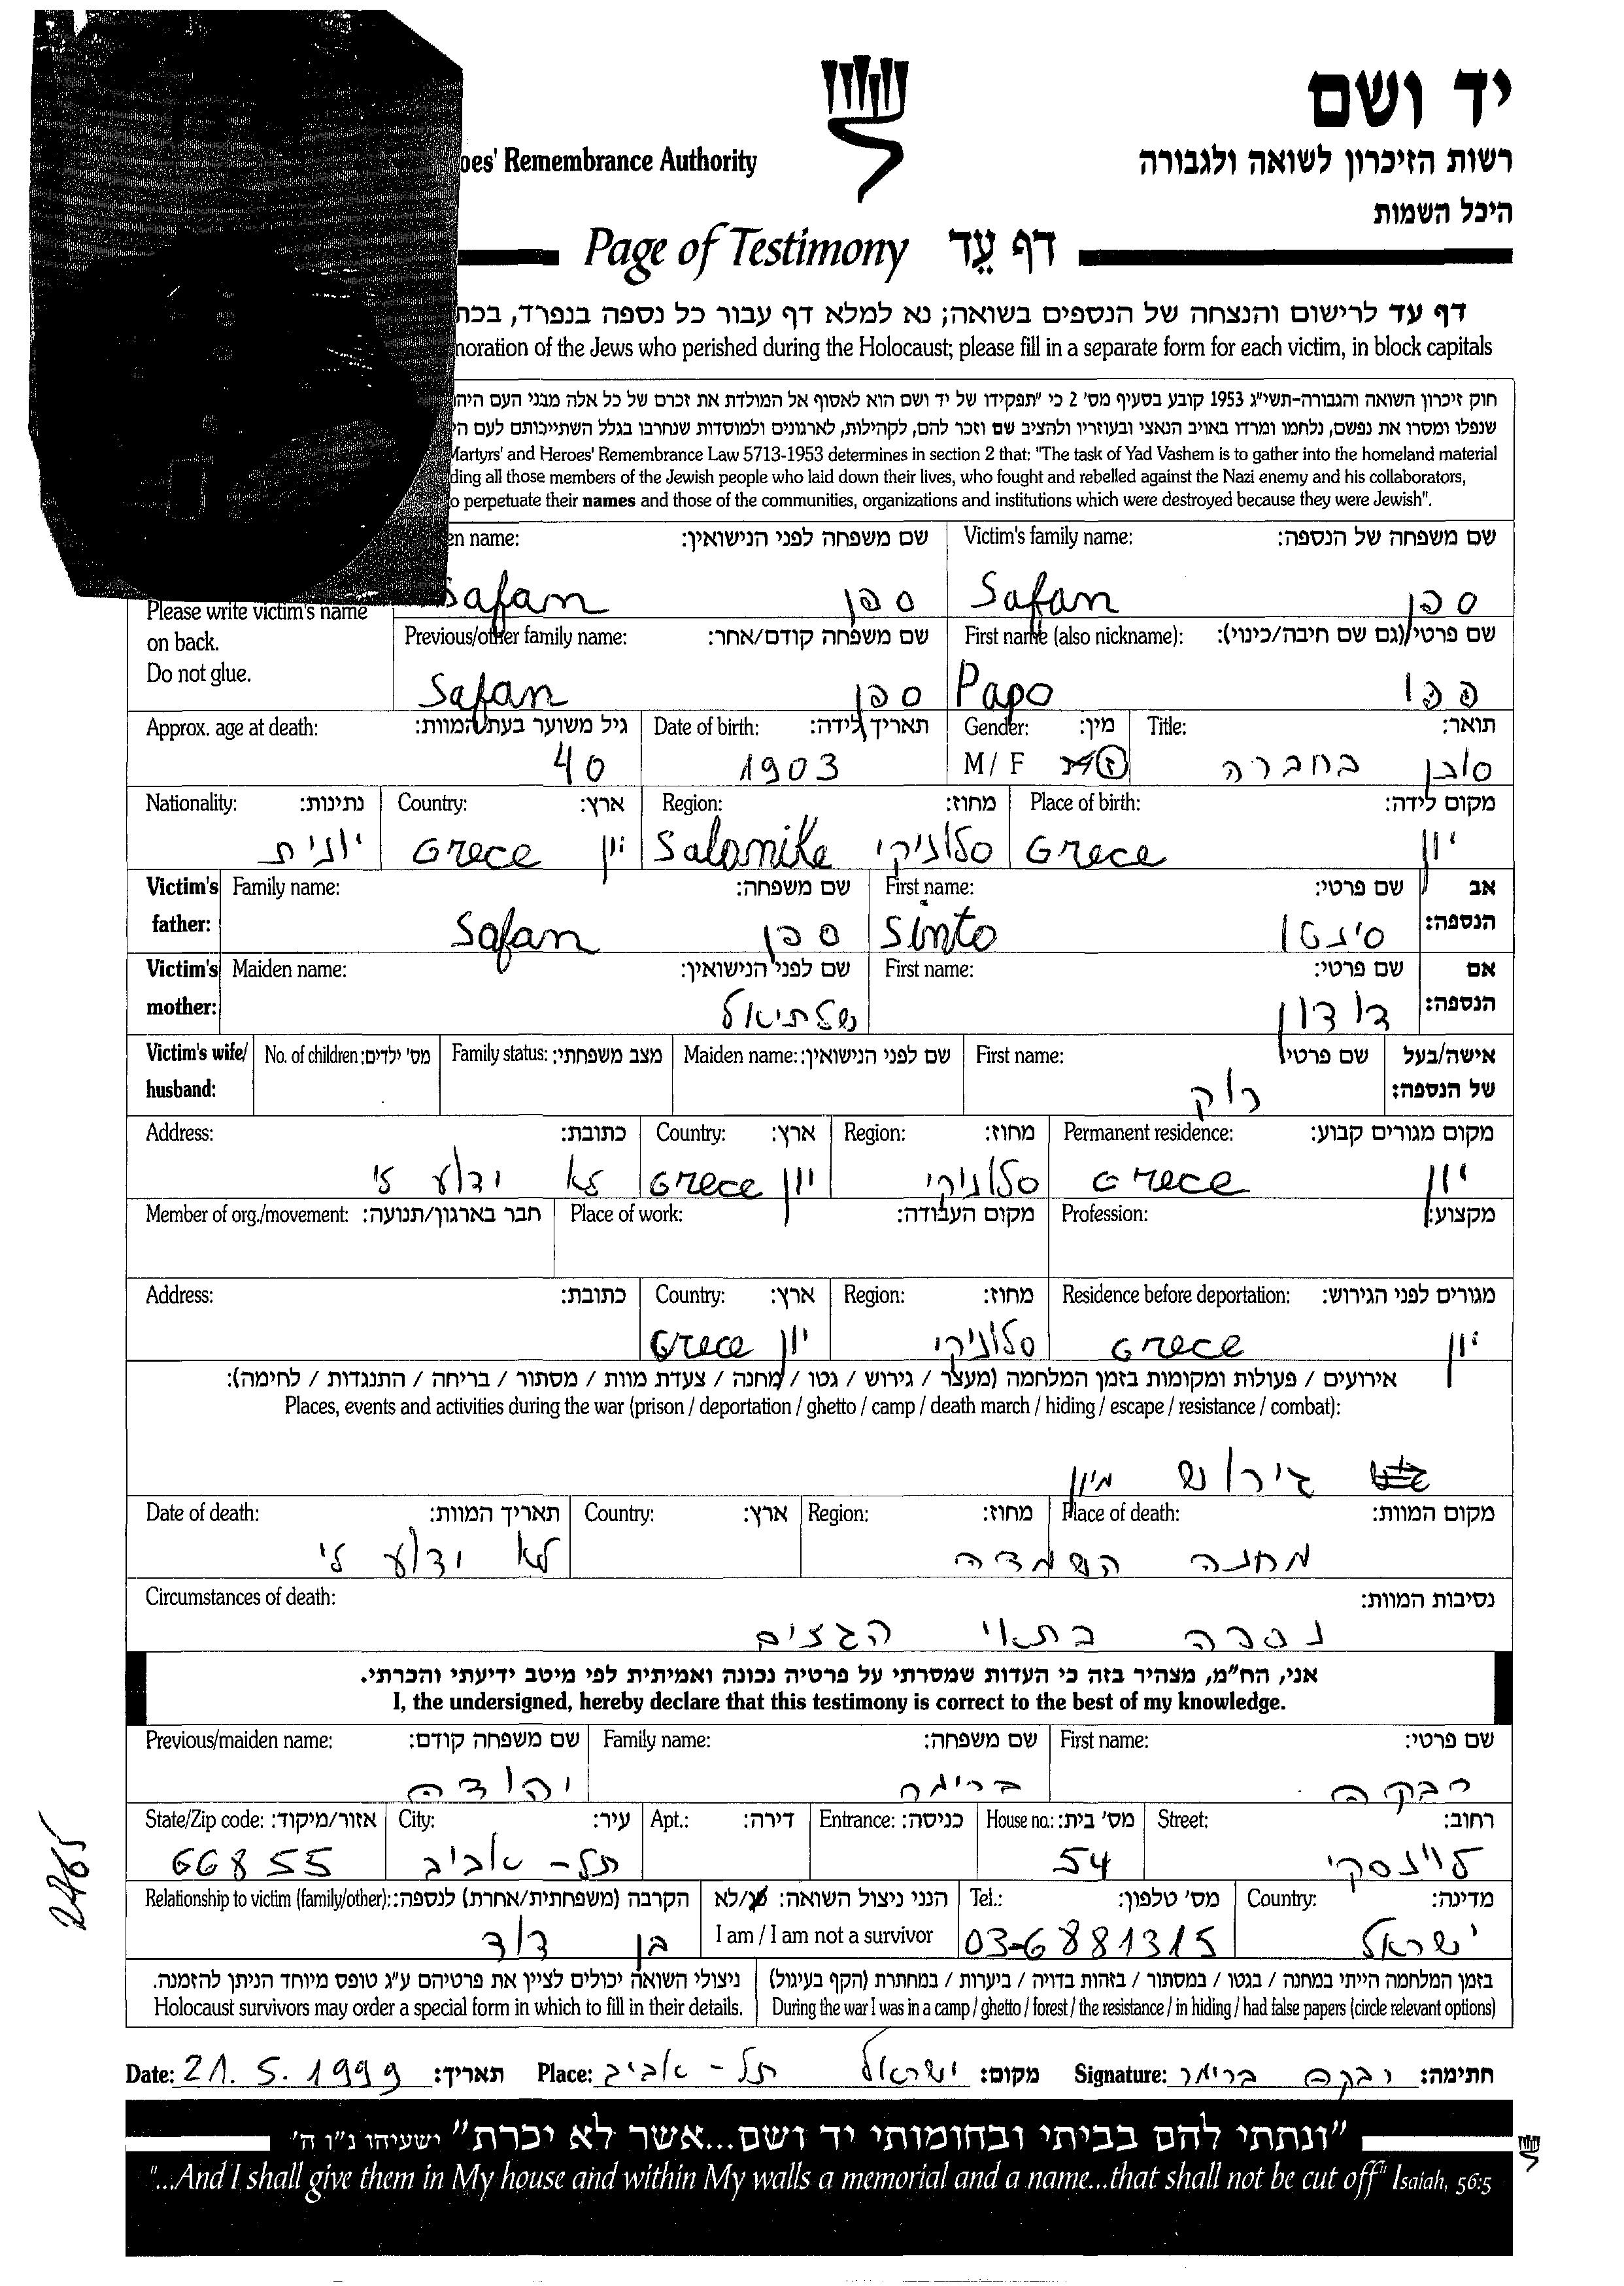 יד ושם
oes' Remembrance Authority
רשות הזיכרון לשואה ולגבורה
היכל השמות
Page of Testimony דף עֵד
דף עד לרישום והנצחה של הנספים בשואה; נא למלא דף עבור כל נספה בנפרד, בכת
noration of the Jews who perished during the Holocaust; please fill in a separate form for each victim, in block capitals
חוק זיכרון השואה והגבורה-תשי"ג 1953 קובע בסעיף מס' 2 כי "תפקידו של יד ושם הוא לאסוף אל המולדת את זכרם של כל אלה מבני העם היה
שנפלו ומסרו את נפשם, נלחמו ומרדו באויב הנאצי ובעוזריו ולהציב שם וזכר להם, לקהילות, לארגונים ולמוסדות שנחרבו בגלל השתייכותם לעם הי
Martyrs' and Heroes' Remembrance Law 5713-1953 determines in section 2 that: "The task of Yad Vashem is to gather into the homeland material
ding all those members of the Jewish people who laid down their lives, who fought and rebelled against the Nazi enemy and his collaborators,
o perpetuate their names and those of the communities, organizations and institutions which were destroyed because they were Jewish".
Victim's family name: שם משפחה של הנספה:
Safan ספן
en name: שם משפחה לפני הנישואין:
Safan ספן
Please write victim's name
on back.
Do not glue.
First name (also nickname): שם פרטי (גם שם חיבה/כינוי):
Papo פפו
Previous/other family name: שם משפחה קודם/אחר:
Safan ספן
Title: תואר:
סובן בחברה
Gender: מין:
M / F ז
Date of birth: תאריך לידה:
1903
Approx. age at death: גיל משוער בעת המוות:
40
Place of birth: מקום לידה:
Grece יון
Region: מחוז:
Salonike סלוניקי
Country: ארץ:
Grece יון
Nationality: נתינות:
יונית
Victim's father: אב הנספה:
First name: שם פרטי:
Sinto סינטו
Family name: שם משפחה:
Safan ספן
Victim's mother: אם הנספה:
First name: שם פרטי:
דודון
Maiden name: שם לפני הנישואין:
שלתיאל
Victim's wife/ husband: אישה/בעל של הנספה:
First name: שם פרטי
רוק
Maiden name: שם לפני הנישואין:
Family status: מצב משפחתי:
No. of children: מס' ילדים:
Permanent residence: מקום מגורים קבוע:
Grece יון
Region: מחוז:
סלוניקי
Country: ארץ:
Grece יון
Address: כתובת:
לא ידוע לי
Profession: מקצוע:
Place of work: מקום העבודה:
Member of org./movement: חבר בארגון/תנועה:
Residence before deportation: מגורים לפני הגירוש:
Grece יון
Region: מחוז:
סלוניקי
Country: ארץ:
Grece יון
Address: כתובת:
אירועים / פעולות ומקומות בזמן המלחמה (מעצר / גירוש / גטו / מחנה / צעדת מוות / מסתור / בריחה / התנגדות / לחימה):
Places, events and activities during the war (prison / deportation / ghetto / camp / death march / hiding / escape / resistance / combat):
גירוש מיון
Place of death: מקום המוות:
Region: מחוז:
מחנה השמדה
Country: ארץ:
Date of death: תאריך המוות:
לא ידוע לי
Circumstances of death: נסיבות המוות:
נספה בתאי הגזים
אני, הח"מ, מצהיר בזה כי העדות שמסרתי על פרטיה נכונה ואמיתית לפי מיטב ידיעתי והכרתי.
I, the undersigned, hereby declare that this testimony is correct to the best of my knowledge.
First name: שם פרטי:
רבקה
Family name: שם משפחה:
ברימר
Previous/maiden name: שם משפחה קודם:
יהודה
Street: רחוב:
לוינסקי
House no.: מס' בית:
54
Entrance: כניסה:
Apt.: דירה:
City: עיר:
תל-אביב
State/Zip code: אזור/מיקוד:
66855
Country: מדינה:
ישראל
Tel.: מס' טלפון:
03-6881315
הנני ניצול השואה: כן/לא
I am / I am not a survivor
Relationship to victim (family/other): הקרבה (משפחתית/אחרת) לנספה:
בן דוד
בזמן המלחמה הייתי במחנה / בגטו / במסתור / בזהות בדויה / ביערות / במחתרת (הקף בעיגול)
During the war I was in a camp / ghetto / forest / the resistance / in hiding / had false papers (circle relevant options)
ניצולי השואה יכולים לציין את פרטיהם ע"ג טופס מיוחד הניתן להזמנה.
Holocaust survivors may order a special form in which to fill in their details.
2465
Date: 21.5.1999 תאריך: Place: ישראל תל-אביב מקום: Signature: רבקה ברימר חתימה:
"ונתתי להם בביתי ובחומותי יד ושם...אשר לא יכרת" ישעיהו נ"ו ה'
"...And I shall give them in My house and within My walls a memorial and a name...that shall not be cut off" Isaiah, 56:5